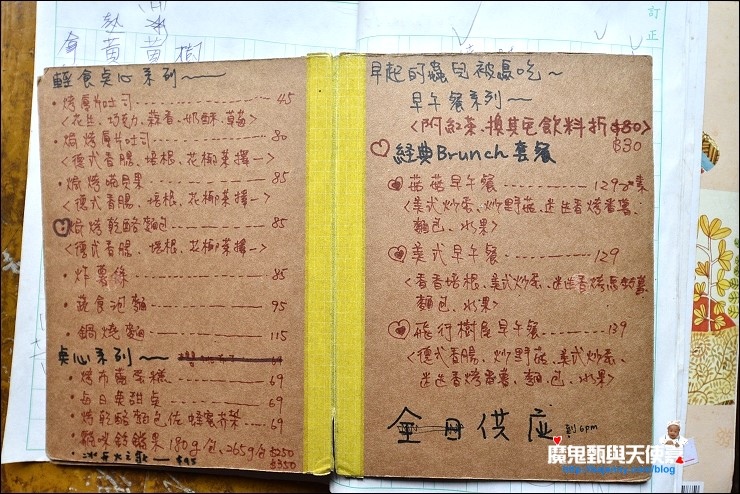 訂正
輕食桌心系列～
・烤厚片吐司 45
<花生、巧克力、蒜香、奶酥、草莓>
・焗烤厚片吐司 80
<德式香腸、培根、花椰菜擇一>
・焗烤貝果 85
<德式香腸、培根、花椰菜擇一>
焗烤乾酪麵包 85
<德式香腸、培根、花椰菜擇一>
・炸薯條 85
・蔬食泡麵 95
・鍋燒麵 115
桌心系列～ 69
・烤布蕾蛋糕 69
・每日臭甜桌 69
・烤乾酪麵包佐蜂蜜芥茉 69
180g包、265g包 $250
$350
早起的蟲兒被鳥吃～
早午餐系列～
<附紅茶、換其它飲料折$30>
$30
經典Brunch套餐
菇菇早午餐 129
<美式炒蛋、炒野菇、迷迭香烤番薯、
麵包、水果>
美式早午餐 129
<香香培根、美式炒蛋、迷迭香烤馬鈴薯、
麵包、水果>
飛行樹屋早午餐 139
<德式香腸、炒野菇、美式炒蛋、
迷迭香烤番薯、麵包、水果>
全日供應 到6pm
魔鬼甄與天使嘉